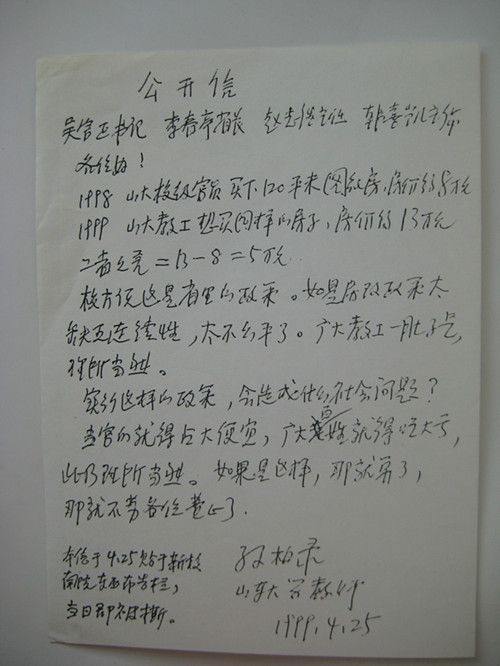 公开信
吴官正书记 李春亭省长 赵志浩主任 韩喜凯主席
各位好！
1998 山大校级官员买下120平米图红房，房价约8万元
1999 山大教工想买同样的房子，房价约13万元
二者之差＝13－8＝5万元.
校方说这是省里的政策。如果房改政策太
缺乏连续性，太不公平了。广大教工一肚子气，
理所当然。
实行这样的政策，会造成什么社会问题？
当官的就得占大便宜，广大百姓就得吃大亏，
此乃理所当然。如果是这样，那就算了，
那就不劳各位费心了.
本信于4.25贴于新校
南院东西布告栏，
当日即被撕。
孙柏录
山东大学教师
1999.4.25